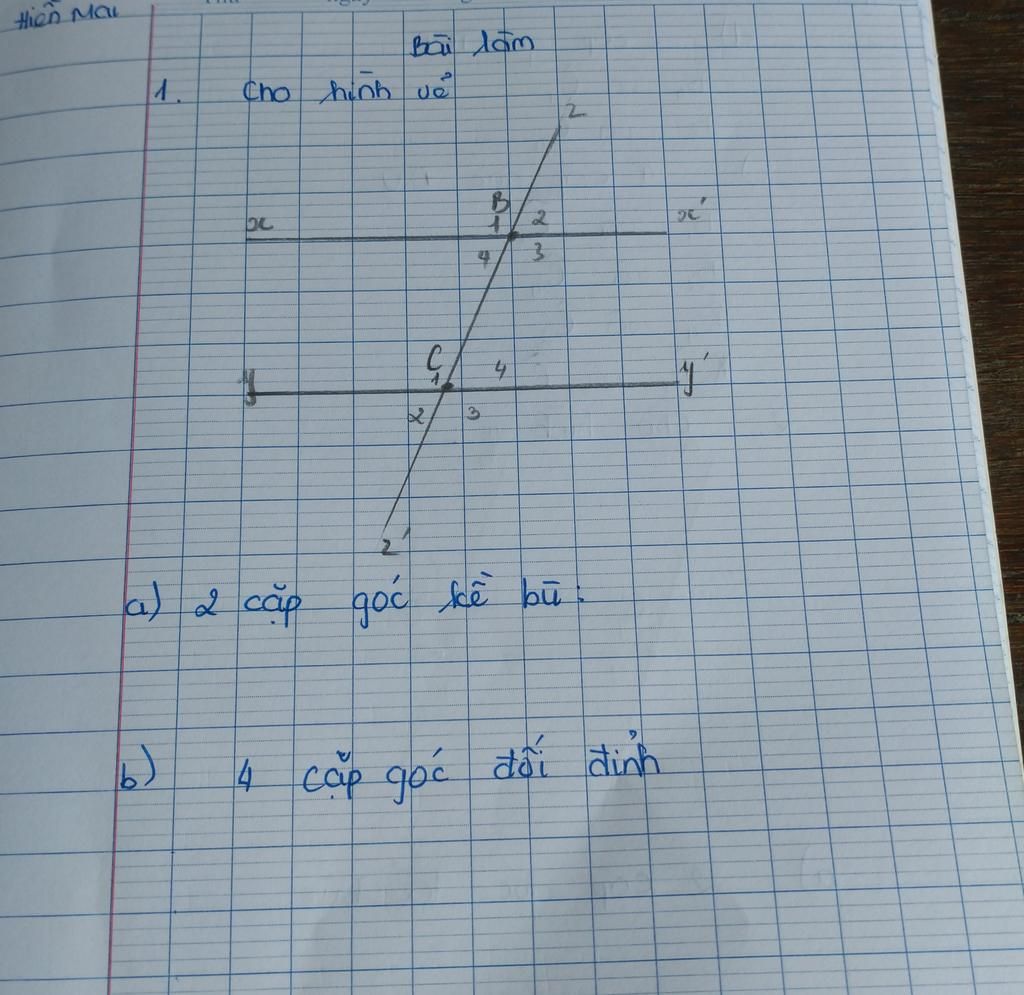 Hiền Mai
Bài làm
1. Cho hình vẽ
z
B
x 1 2 x'
4 3
C
y 1 4 y'
2 3
z'
a) 2 cặp góc kề bù:
b) 4 cặp góc đối đỉnh